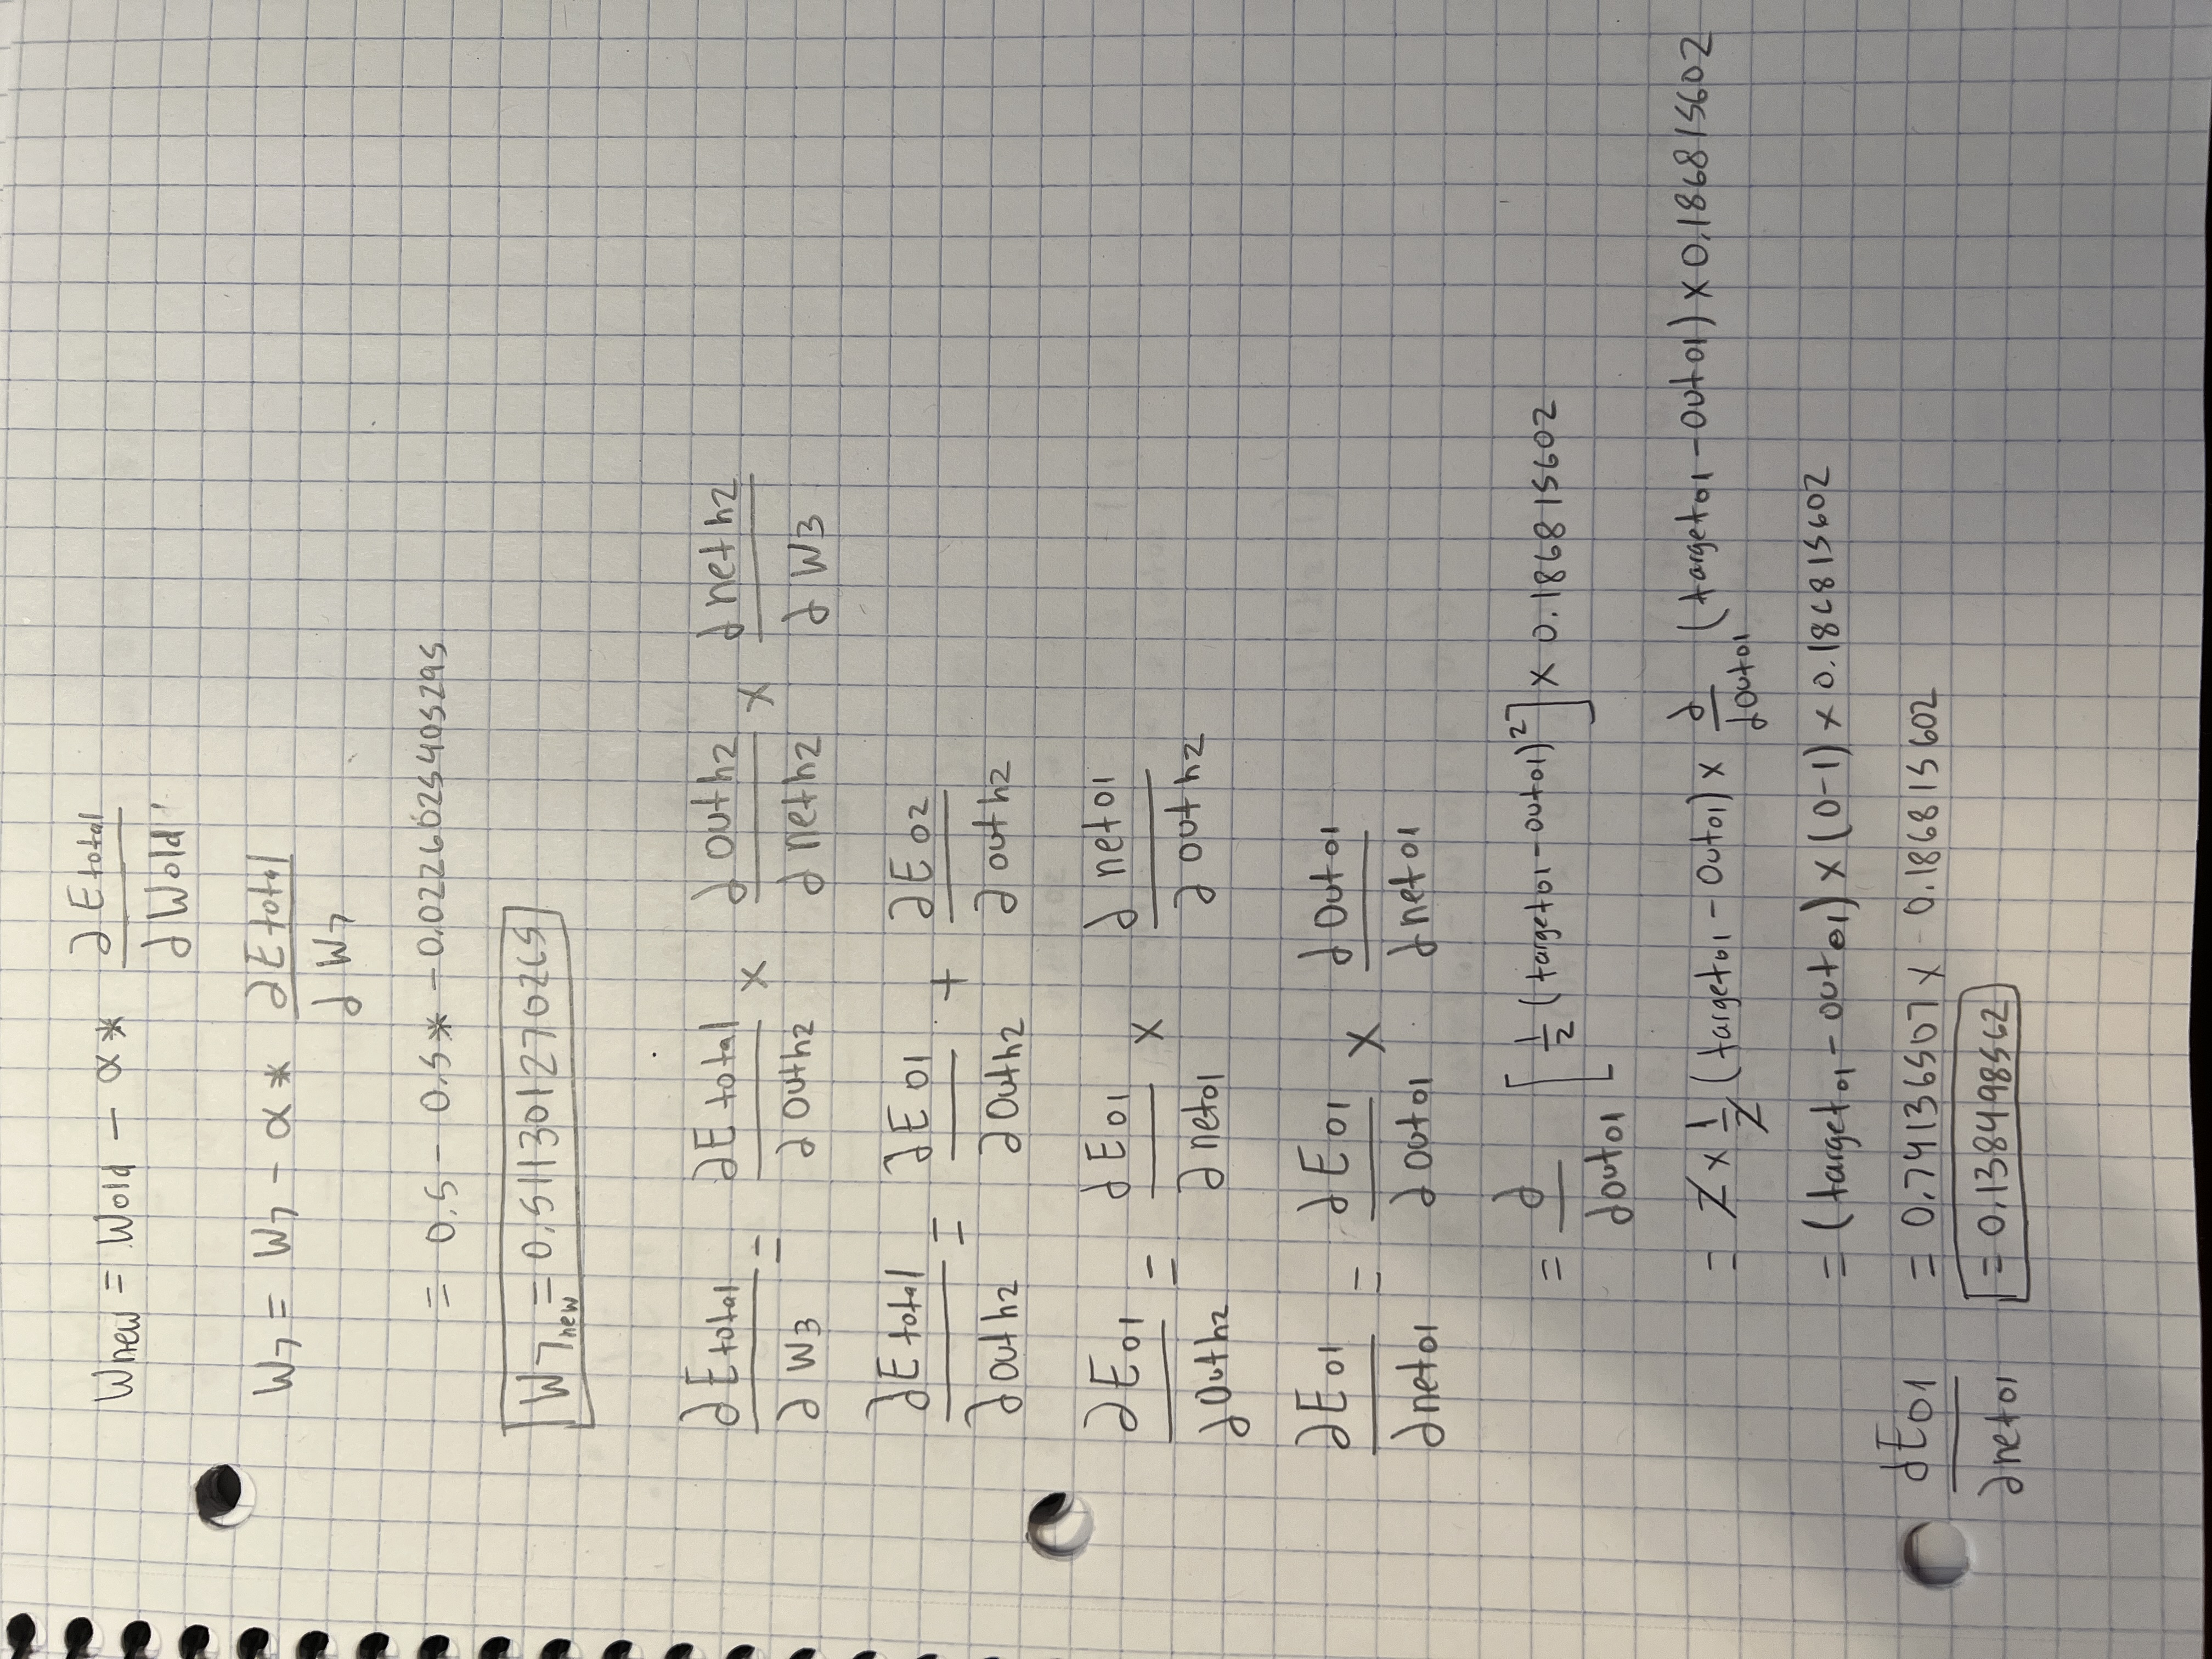 Wnew = Wold - α * ∂Etotal / ∂Wold
W7 = W7 - α * ∂Etotal / ∂W7
= 0.5 - 0.5 * -0.0226025405295
W7new = 0.511301270265
∂Etotal / ∂W3 = ∂Etotal / ∂outh2 × ∂outh2 / ∂neth2 × ∂neth2 / ∂W3
∂Etotal / ∂outh2 = ∂Eo1 / ∂outh2 + ∂Eo2 / ∂outh2
∂Eo1 / ∂outh2 = ∂Eo1 / ∂neto1 × ∂neto1 / ∂outh2
∂Eo1 / ∂neto1 = ∂Eo1 / ∂outo1 × ∂outo1 / ∂neto1
= ∂ / ∂outo1 [1/2 (targeto1 - outo1)²] × 0.186815602
= 2 × 1/2 (targeto1 - outo1) × ∂ / ∂outo1 (targeto1 - outo1) × 0.186815602
= (targeto1 - outo1) × (0-1) × 0.186815602
∂Eo1 / ∂neto1 = 0.74136507 × 0.186815602
= 0.138498562